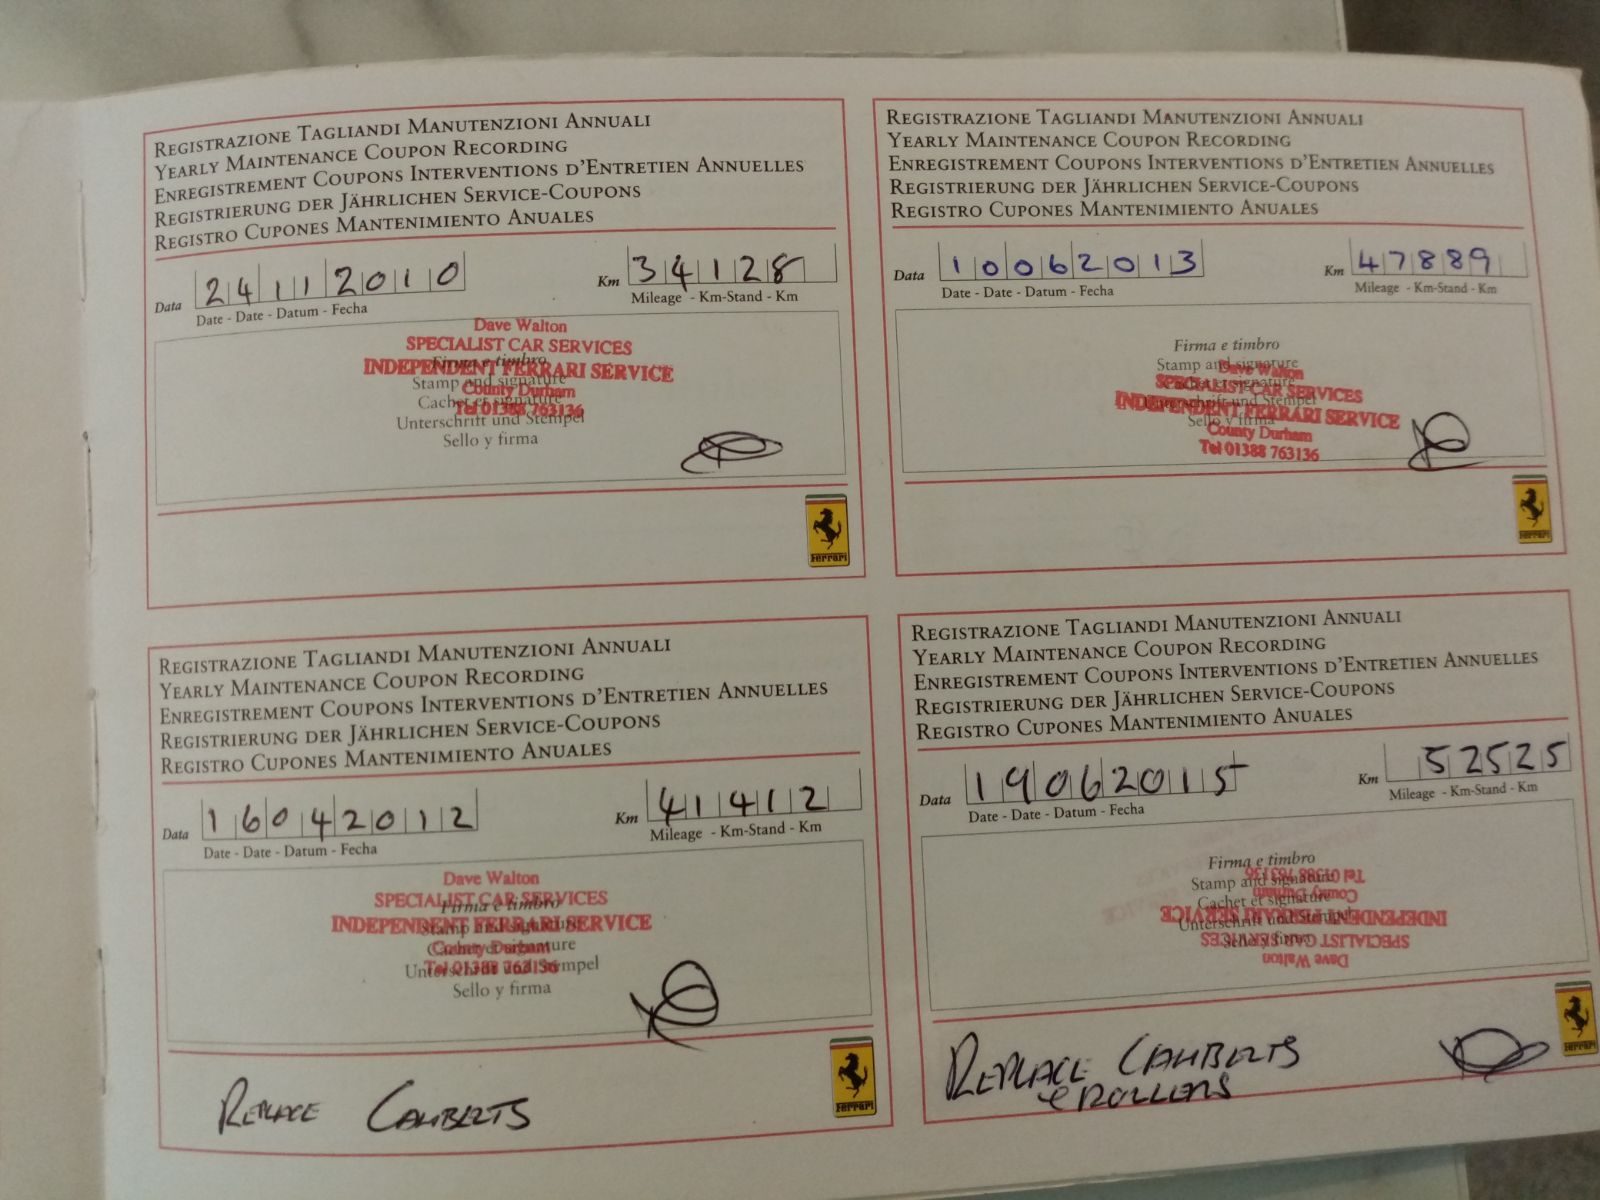 REGISTRAZIONE TAGLIANDI MANUTENZIONI ANNUALI
YEARLY MAINTENANCE COUPON RECORDING
ENREGISTREMENT COUPONS INTERVENTIONS D'ENTRETIEN ANNUELLES
REGISTRIERUNG DER JÄHRLICHEN SERVICE-COUPONS
REGISTRO CUPONES MANTENIMIENTO ANUALES
Data 24112010 Km 34128
Date - Date - Datum - Fecha Mileage - Km-Stand - Km
Dave Walton
SPECIALIST CAR SERVICES
Firma e timbro
INDEPENDENT FERRARI SERVICE
Stamp and signature
County Durham
Cachet et signature
Tel 01388 763136
Unterschrift und Stempel
Sello y firma
Ferrari
REGISTRAZIONE TAGLIANDI MANUTENZIONI ANNUALI
YEARLY MAINTENANCE COUPON RECORDING
ENREGISTREMENT COUPONS INTERVENTIONS D'ENTRETIEN ANNUELLES
REGISTRIERUNG DER JÄHRLICHEN SERVICE-COUPONS
REGISTRO CUPONES MANTENIMIENTO ANUALES
Data 10062013 Km 47889
Date - Date - Datum - Fecha Mileage - Km-Stand - Km
Firma e timbro
Stamp and signature
Dave Walton
Cachet et signature
SPECIALIST CAR SERVICES
Unterschrift und Stempel
INDEPENDENT FERRARI SERVICE
Sello y firma
County Durham
Tel 01388 763136
Ferrari
REGISTRAZIONE TAGLIANDI MANUTENZIONI ANNUALI
YEARLY MAINTENANCE COUPON RECORDING
ENREGISTREMENT COUPONS INTERVENTIONS D'ENTRETIEN ANNUELLES
REGISTRIERUNG DER JÄHRLICHEN SERVICE-COUPONS
REGISTRO CUPONES MANTENIMIENTO ANUALES
Data 16042012 Km 41412
Date - Date - Datum - Fecha Mileage - Km-Stand - Km
Dave Walton
SPECIALIST CAR SERVICES
Firma e timbro
INDEPENDENT FERRARI SERVICE
Stamp and signature
County Durham
Cachet et signature
Tel 01388 763136
Unterschrift und Stempel
Sello y firma
REPLACE CAMBELTS
Ferrari
REGISTRAZIONE TAGLIANDI MANUTENZIONI ANNUALI
YEARLY MAINTENANCE COUPON RECORDING
ENREGISTREMENT COUPONS INTERVENTIONS D'ENTRETIEN ANNUELLES
REGISTRIERUNG DER JÄHRLICHEN SERVICE-COUPONS
REGISTRO CUPONES MANTENIMIENTO ANUALES
Data 19062015 Km 52525
Date - Date - Datum - Fecha Mileage - Km-Stand - Km
Firma e timbro
Stamp and signature
Cachet et signature
Unterschrift und Stempel
Sello y firma
Dave Walton
SPECIALIST CAR SERVICES
INDEPENDENT FERRARI SERVICE
County Durham
Tel 01388 763136
REPLACE CAMBELTS
& ROLLERS
Ferrari